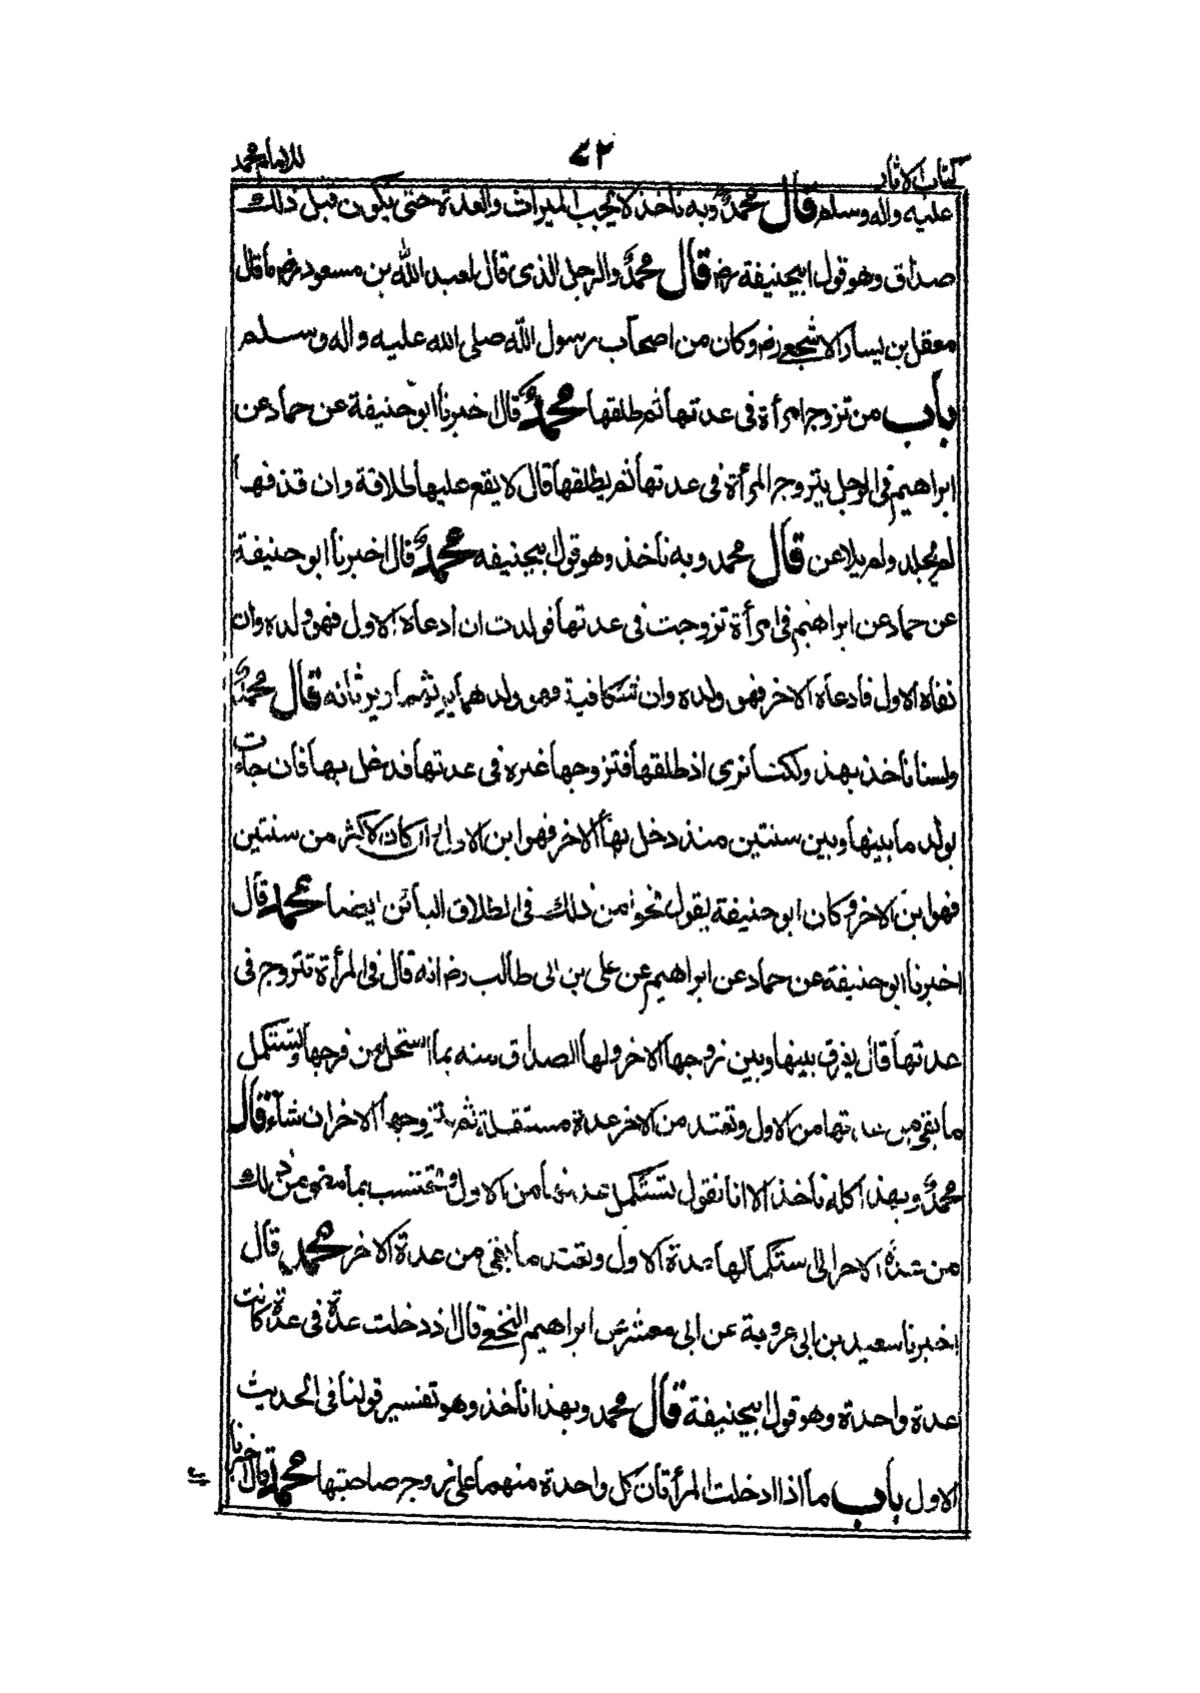 كتاب الاثار ٧٢ للامام محمد
عليه واله وسلم قال محمد وبه نأخذ لا يجب الميراث والعدة حتى يكون قبل ذلك
صداق وهو قول ابيحنيفة رض قال محمد والرجل الذى قال لعبد الله بن مسعود رض ما قال
معقل بن يسار الاشجعى رض وكان من اصحاب رسول الله صلى الله عليه واله وسلم
باب من تزوج امرأة فى عدتها ثم طلقها محمد قال اخبرنا ابو حنيفة عن حماد عن
ابراهيم فى الرجل يتزوج المرأة فى عدتها ثم يطلقها قال لا يقع عليها طلاقة وان قذفها
لم يجلد ولم يلاعن قال محمد وبه نأخذ وهو قول ابيحنيفه محمد قال اخبرنا ابو حنيفة
عن حماد عن ابراهيم فى امرأة تزوجت فى عدتها فولدت ان ادعاه الاول فهو ولده وان
نفاه الاول فادعاه الاخر فهو ولده وان شكا فيه فهو ولدهما يرثهما ويرثانه قال محمد
ولسنا نأخذ بهذا ولكنا نرى اذ طلقها فتزوجها غيره فى عدتها فدخل بها فان جاءت
بولد ما بينها وبين سنتين منذ دخل بها الاخر فهو ابن الاول وان كان لاكثر من سنتين
فهو ابن الاخر وكان ابو حنيفة يقول نحوا من ذلك فى الطلاق البائن ايضا محمد قال
اخبرنا ابو حنيفة عن حماد عن ابراهيم عن على بن ابى طالب رض انه قال فى المرأة تتزوج فى
عدتها قال يفرق بينها وبين زوجها الاخر ولها الصداق منه بما استحل من فرجها وتستكمل
ما بقى من عدتها من الاول وتعتد من الاخر عدة مستقلة ثم يتزوجها الاخر ان شاء قال
محمد وبهذا كله نأخذ الا انا نقول تستكمل عدتها من الاول وتحتسب بما مضى من ذلك
من عدة الاخر الى استكمالها عدة الاول وتعتد ما بقى من عدة الاخر محمد قال
اخبرنا سعيد بن ابى عروبة عن ابى معشر عن ابراهيم النخعى قال اذ دخلت عدة فى عدة كانت
عدة واحدة وهو قول ابيحنيفة قال محمد وبهذا نأخذ وهو تفسير قولنا فى الحديث
الاول باب ما اذا ادخلت المرأتان كل واحدة منهما على زوج صاحبتها محمد قال اخبرنا